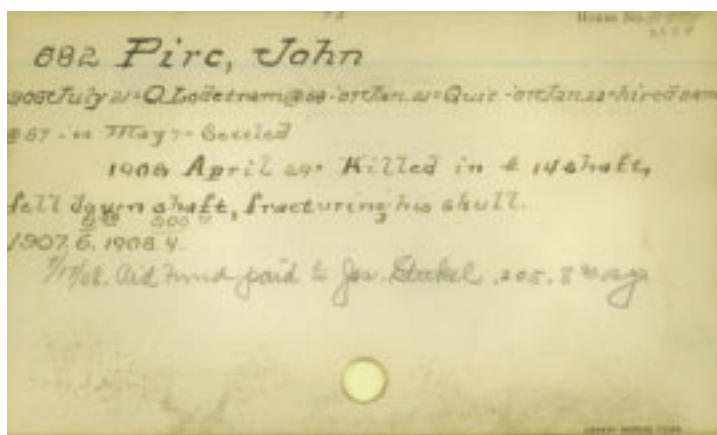 House No.
682 Pirc, John
1906 July 21 = O. Lodetram @ 68 - 07 Jan. 21 = Quit. - 07 Jan. 22 = hired same
@ 67 - May 7 = Settled
1908 April 29 = Killed in # 14 shaft,
fell down shaft, fracturing his skull.
1907. 6. 1908. 4.
Aid Fund paid to Jos. 205.